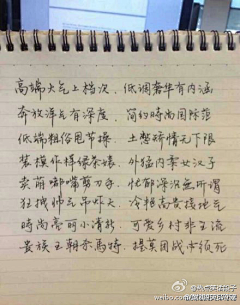 高端大气上档次，低调奢华有内涵
奔放洋气有深度，简约时尚国际范
低端粗俗甩节操，土憋矫情无下限
装模作样绿茶婊，外猛内柔女汉子
卖萌嘟嘴剪刀手，忧郁深沉无所谓
狂拽帅气吊炸天，冷艳高贵接地气
时尚亮丽小清新，可爱乡村非主流
贵族王朝杀马特，提莫团战必须死